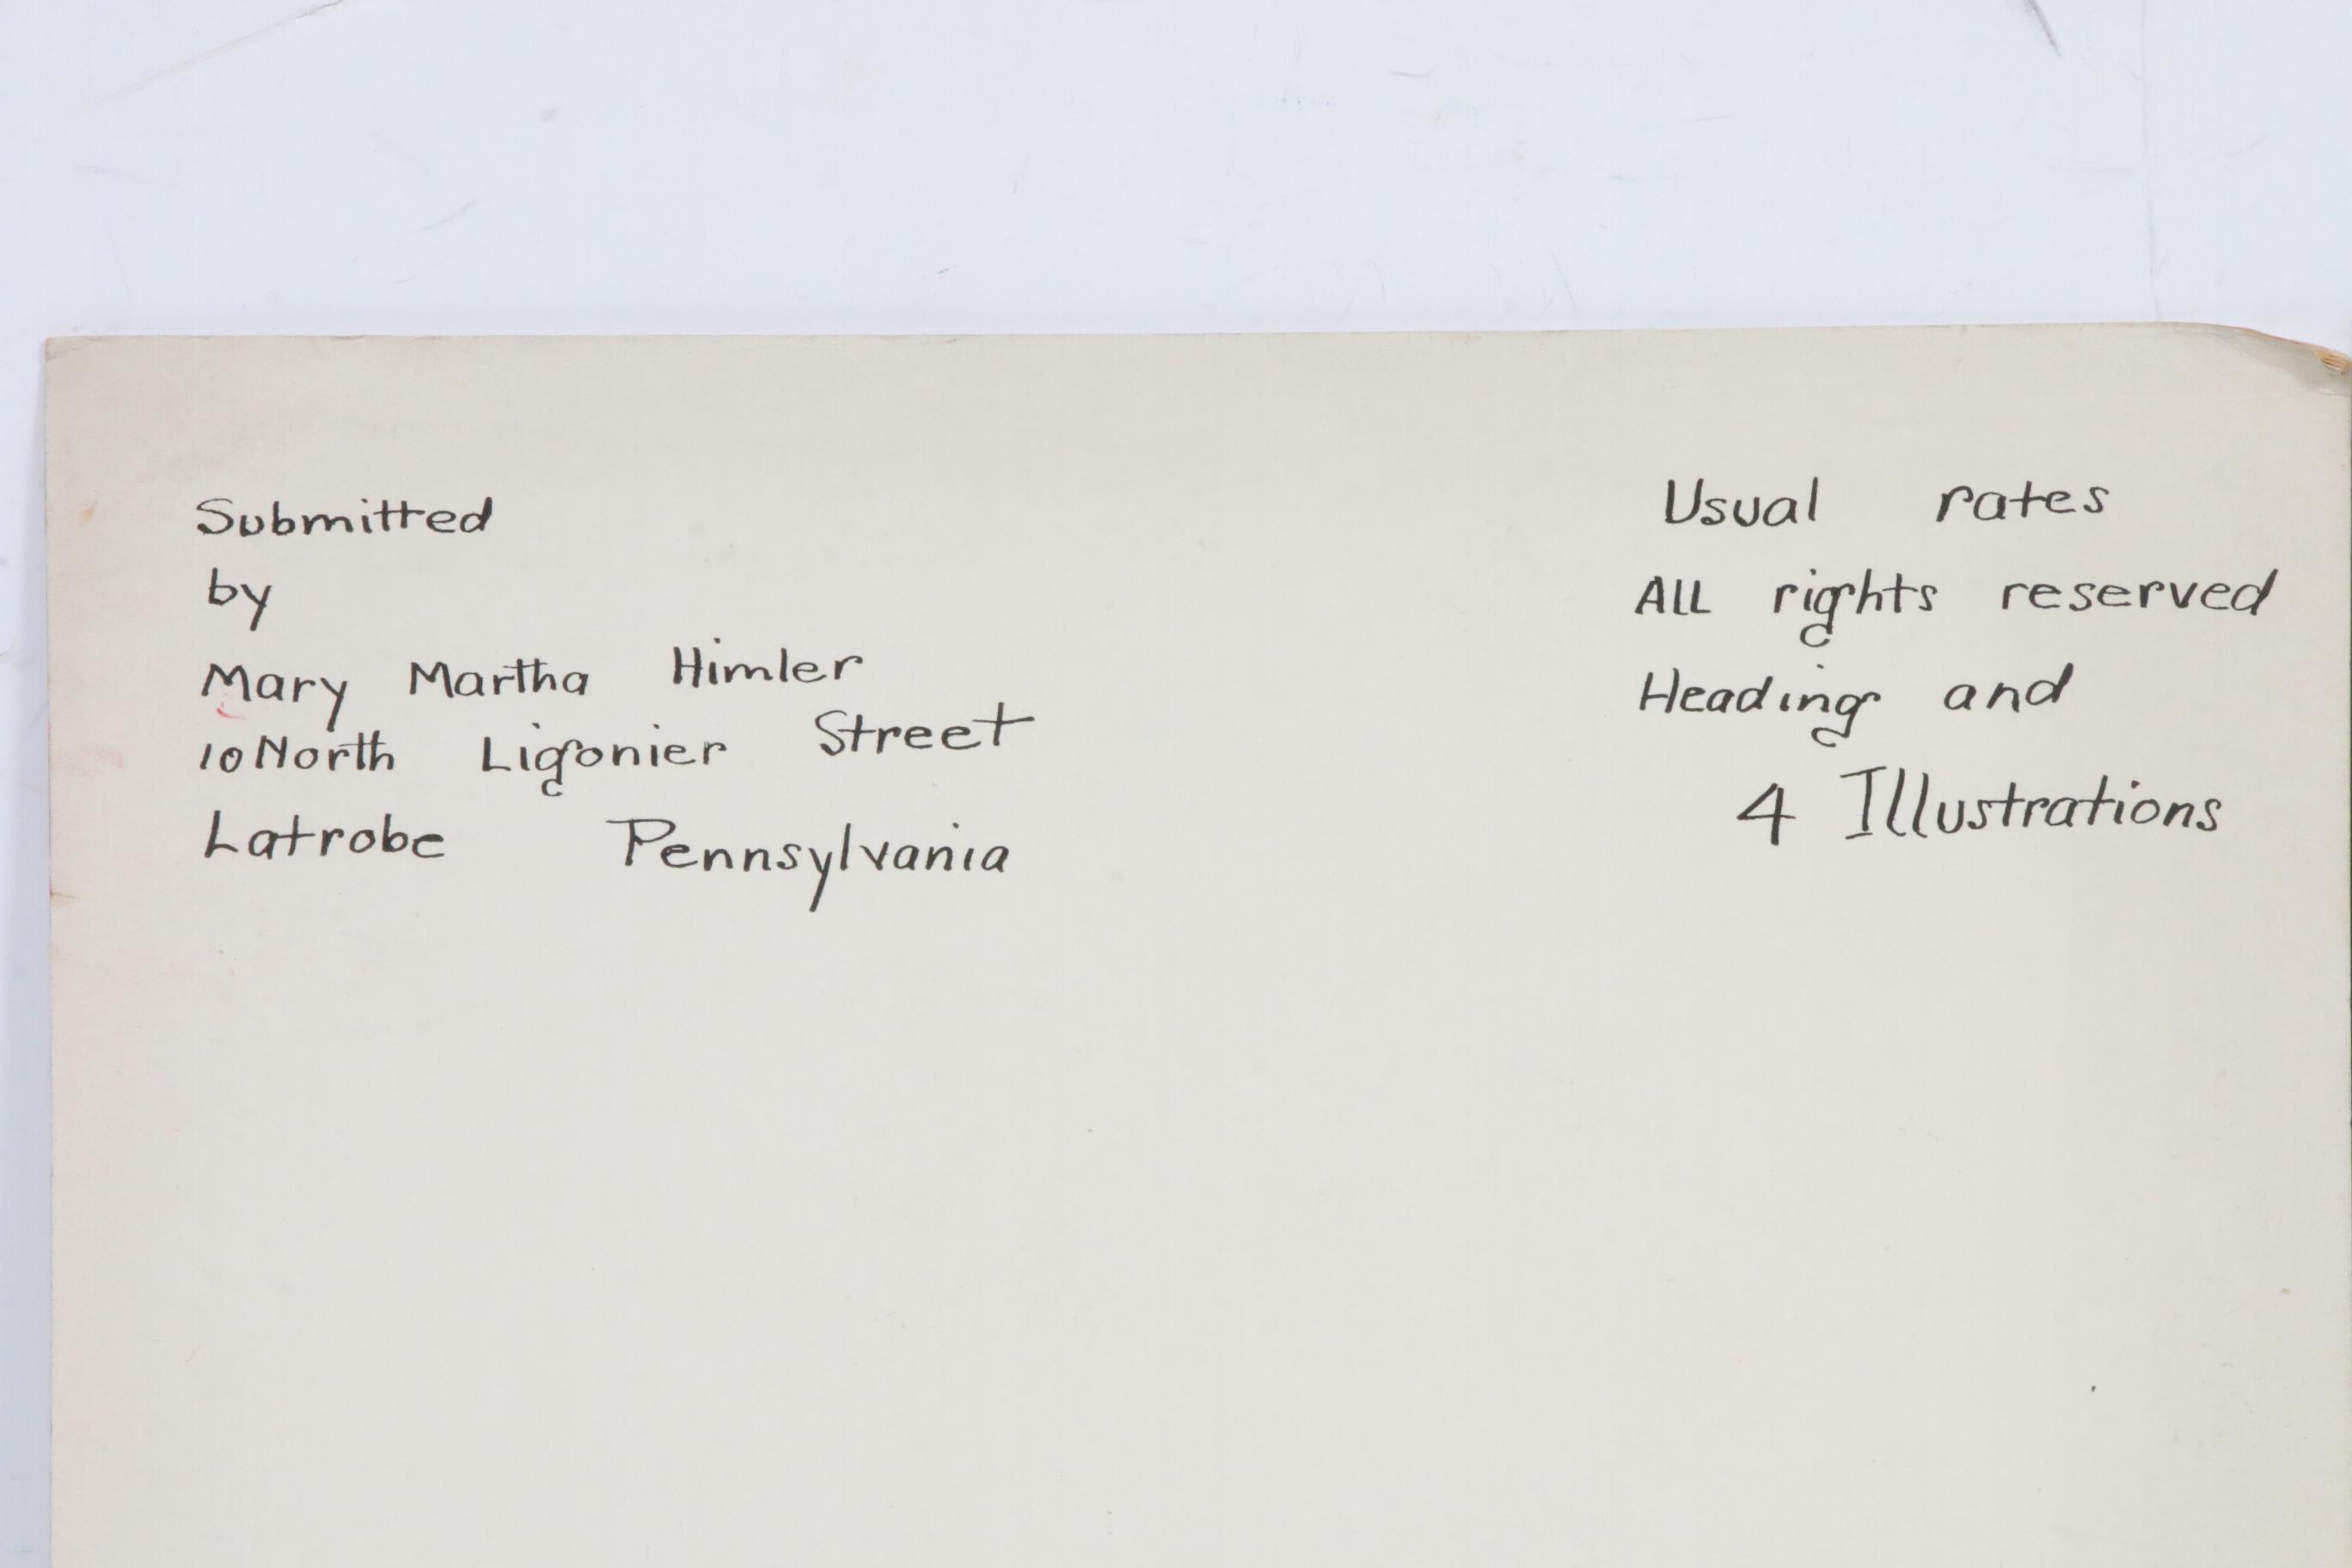 Submitted
by
Mary Martha Himler
10 North Ligonier Street
Latrobe Pennsylvania
Usual rates
ALL rights reserved
Heading and
4 Illustrations